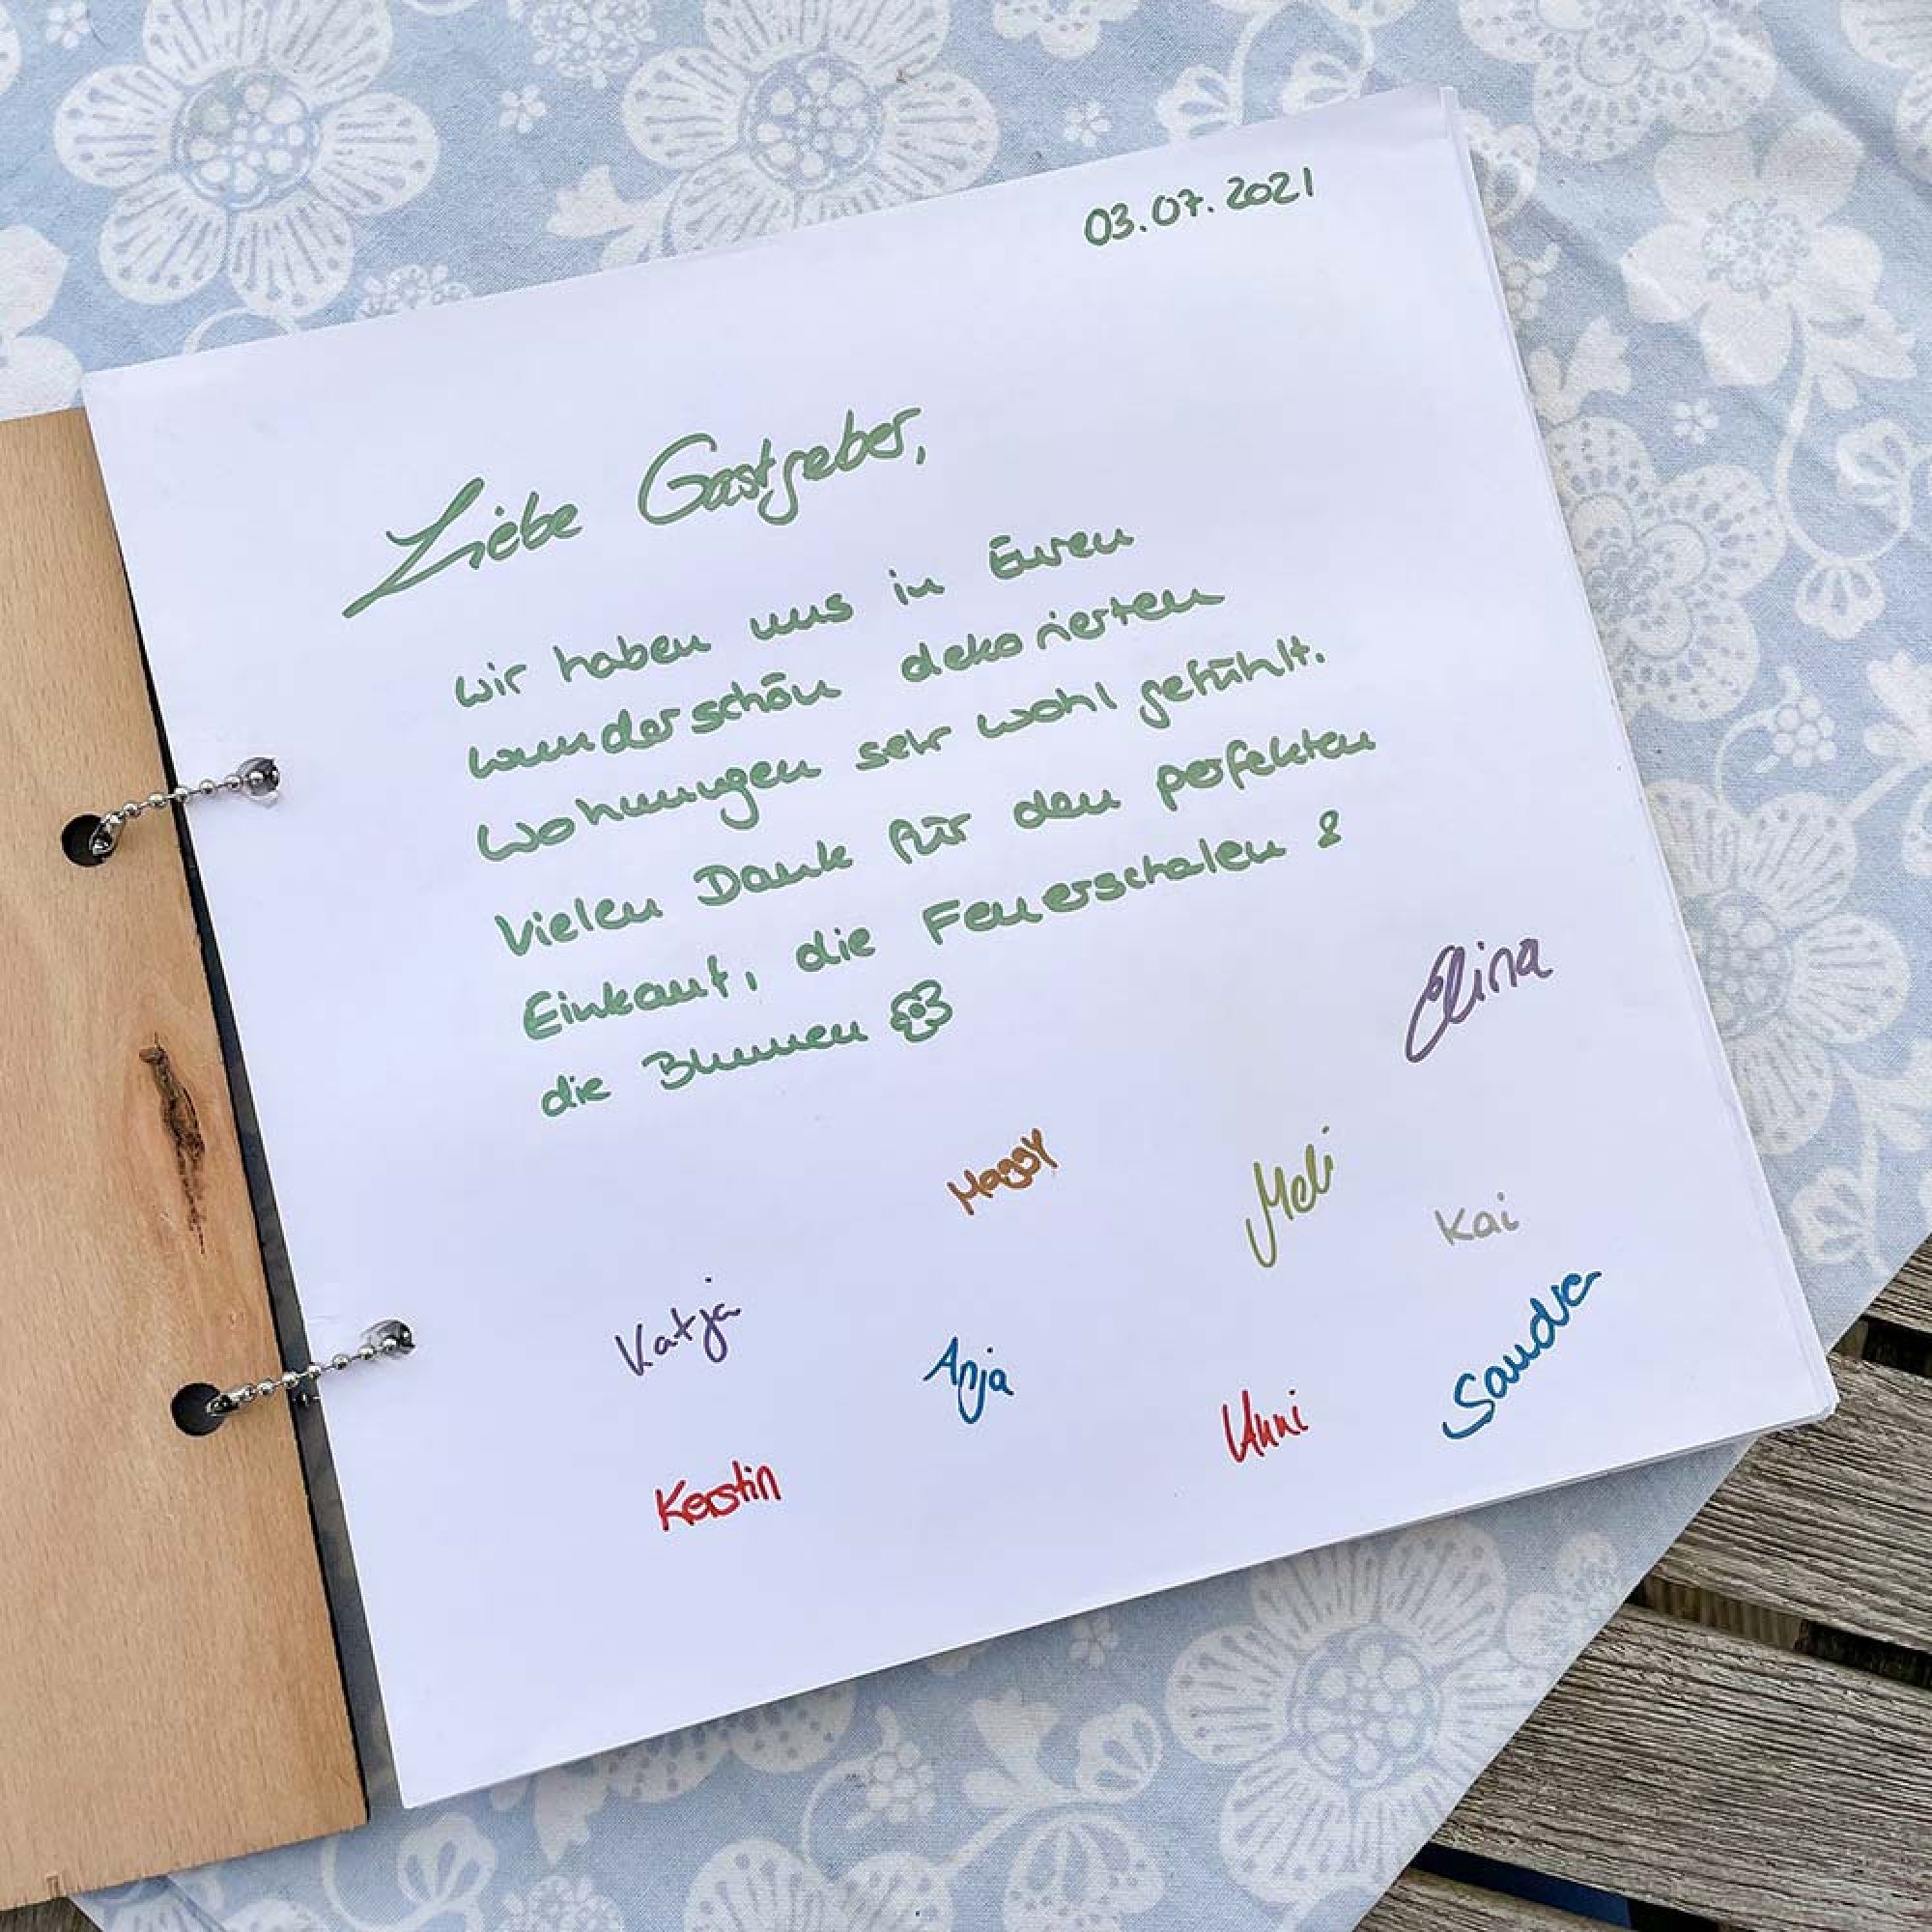 03.07.2021
Liebe Gastgeber,
wir haben uns in Euren
wunderschön dekorierten
Wohnungen sehr wohl gefühlt.
Vielen Dank für den perfekten
Einkauf, die Feuerschalen &
die Blumen
Elina
Maggy
Meli
Kai
Katja
Anja
Sandra
Unni
Kerstin